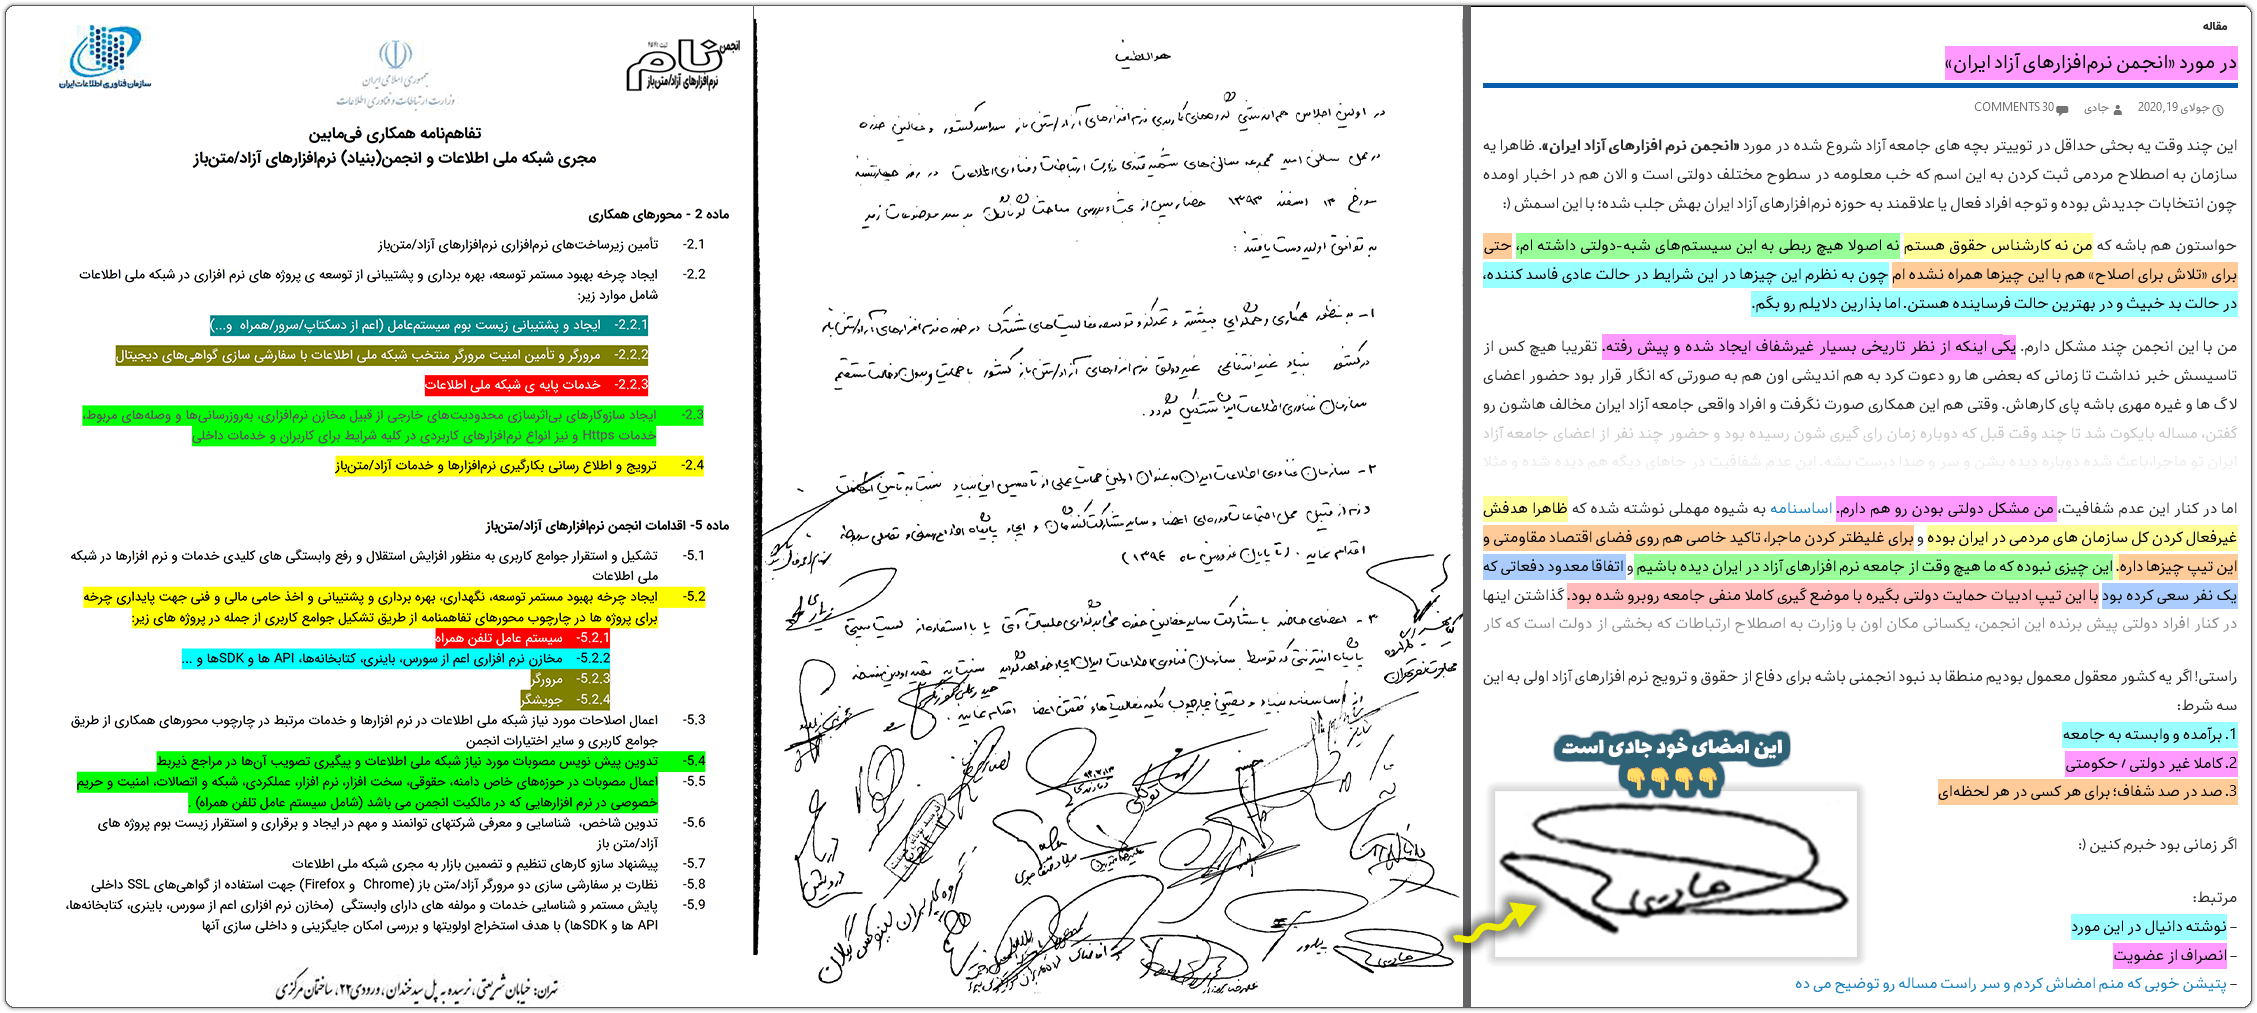 مقاله
در مورد «انجمن نرم‌افزارهای آزاد ایران»
جولای 19, 2020 جادی 30 COMMENTS
این چند وقت یه بحثی حداقل در توییتر بچه های جامعه آزاد شروع شده در مورد «انجمن نرم افزارهای آزاد ایران». ظاهرا یه
سازمان به اصطلاح مردمی ثبت کردن به این اسم که خب معلومه در سطوح مختلف دولتی است و الان هم در اخبار اومده
چون انتخابات جدیدش بوده و توجه افراد فعال یا علاقمند به حوزه نرم‌افزارهای آزاد ایران بهش جلب شده؛ با این اسمش (:
حواستون هم باشه که من نه کارشناس حقوق هستم نه اصولا هیچ ربطی به این سیستم‌های شبه-دولتی داشته ام، حتی
برای «تلاش برای اصلاح» هم با این چیزها همراه نشده ام چون به نظرم این چیزها در این شرایط در حالت عادی فاسد کننده،
در حالت بد خبیث و در بهترین حالت فرساینده هستن. اما بذارین دلایلم رو بگم.
من با این انجمن چند مشکل دارم. یکی اینکه از نظر تاریخی بسیار غیرشفاف ایجاد شده و پیش رفته. تقریبا هیچ کس از
تاسیسش خبر نداشت تا زمانی که بعضی ها رو دعوت کرد به هم اندیشی اون هم به صورتی که انگار قرار بود حضور اعضای
لاگ ها و غیره مهری باشه پای کارهاش. وقتی هم این همکاری صورت نگرفت و افراد واقعی جامعه آزاد ایران مخالف هاشون رو
گفتن، مساله بایکوت شد تا چند وقت قبل که دوباره زمان رای گیری شون رسیده بود و حضور چند نفر از اعضای جامعه آزاد
ایران تو ماجرا،باعث شده دوباره دیده بشن و سر و صدا درست بشه. این عدم شفافیت در جاهای دیگه هم دیده شده و مثلا
اما در کنار این عدم شفافیت، من مشکل دولتی بودن رو هم دارم. اساسنامه به شیوه مهملی نوشته شده که ظاهرا هدفش
غیرفعال کردن کل سازمان های مردمی در ایران بوده و برای غلیظتر کردن ماجرا، تاکید خاصی هم روی فضای اقتصاد مقاومتی و
این تیپ چیزها داره. این چیزی نبوده که ما هیچ وقت از جامعه نرم افزارهای آزاد در ایران دیده باشیم و اتفاقا معدود دفعاتی که
یک نفر سعی کرده بود با این تیپ ادبیات حمایت دولتی بگیره با موضع گیری کاملا منفی جامعه روبرو شده بود. گذاشتن اینها
در کنار افراد دولتی پیش برنده این انجمن، یکسانی مکان اون با وزارت به اصطلاح ارتباطات که بخشی از دولت است که کار
راستی! اگر یه کشور معقول معمول بودیم منطقا بد نبود انجمنی باشه برای دفاع از حقوق و ترویج نرم افزارهای آزاد اولی به این
سه شرط:
1. برآمده و وابسته به جامعه
2. کاملا غیر دولتی / حکومتی
3. صد در صد شفاف؛ برای هر کسی در هر لحظه‌ای
این امضای خود جادی است
جادی
اگر زمانی بود خبرم کنین (:
مرتبط:
– نوشته دانیال در این مورد
– انصراف از عضویت
– پتیشن خوبی که منم امضاش کردم و سر راست مساله رو توضیح می ده
هواللطیف
در اولین اجلاس هم‌اندیشی گروه‌های کاربری نرم‌افزارهای آزاد/متن‌باز سراسر کشور و فعالین حوزه
در محل سالن امید مجموعه سالن‌های شهید قندی وزارت ارتباطات و فناوری اطلاعات در روز چهارشنبه
مورخ ۱۳ اسفند ۱۳۹۳ حضار پس از بحث و بررسی مباحث گوناگون بر سر موضوعات زیر
به توافق اولیه دست یافتند:
۱- به منظور همکاری و همگرایی بیشتر و تمرکز و توسعه فعالیت‌های مشترک در حوزه نرم‌افزارهای آزاد/متن‌باز
در کشور بنیاد غیرانتفاعی غیردولتی نرم‌افزارهای آزاد/متن‌باز کشور با حمایت و بدون دخالت مستقیم
سازمان فناوری اطلاعات ایران تشکیل گردد.
۲- سازمان فناوری اطلاعات ایران به عنوان اولین حمایت عملی از تاسیس این بنیاد نسبت به تامین امکانات
لازم از قبیل محل اجتماعات دوره‌ای اعضا و سایر مشارکت‌کنندگان و ایجاد پایگاه اطلاع‌رسانی و تعاملی مربوطه
اقدام نماید. (تا پایان فروردین ماه ۱۳۹۴)
۳- اعضای حاضر با مشارکت سایر فعالین حوزه طی برگزاری جلسات آتی یا با استفاده از لیست پستی
پایگاه اینترنتی که توسط سازمان فناوری اطلاعات ایران ایجاد خواهد گردید نسبت به تهیه اولین نسخه
از اساسنامه بنیاد و تعیین چارچوب کلیه فعالیت‌ها و نقش اعضا اقدام نمایند.
گروه کاربران لینوکس گیلان
جادی
سازمان فناوری اطلاعات ایران
جمهوری اسلامی ایران
وزارت ارتباطات و فناوری اطلاعات
انجمن نام
نرم‌افزارهای آزاد/متن‌باز
تفاهم‌نامه همکاری فی‌مابین
مجری شبکه ملی اطلاعات و انجمن(بنیاد) نرم‌افزارهای آزاد/متن‌باز
ماده 2 - محورهای همکاری
2.1- تأمین زیرساخت‌های نرم‌افزاری نرم‌افزارهای آزاد/متن‌باز
2.2- ایجاد چرخه بهبود مستمر توسعه، بهره برداری و پشتیبانی از توسعه ی پروژه های نرم افزاری در شبکه ملی اطلاعات
شامل موارد زیر:
2.2.1- ایجاد و پشتیبانی زیست بوم سیستم‌عامل (اعم از دسکتاپ/سرور/همراه و...)
2.2.2- مرورگر و تأمین امنیت مرورگر منتخب شبکه ملی اطلاعات با سفارشی سازی گواهی‌های دیجیتال
2.2.3- خدمات پایه ی شبکه ملی اطلاعات
2.3- ایجاد سازوکارهای بی‌اثرسازی محدودیت‌های خارجی از قبیل مخازن نرم‌افزاری، به‌روزرسانی‌ها و وصله‌های مربوط،
خدمات Https و نیز انواع نرم‌افزارهای کاربردی در کلیه شرایط برای کاربران و خدمات داخلی
2.4- ترویج و اطلاع رسانی بکارگیری نرم‌افزارها و خدمات آزاد/متن‌باز
ماده 5- اقدامات انجمن نرم‌افزارهای آزاد/متن‌باز
5.1- تشکیل و استقرار جوامع کاربری به منظور افزایش استقلال و رفع وابستگی های کلیدی خدمات و نرم افزارها در شبکه
ملی اطلاعات
5.2- ایجاد چرخه بهبود مستمر توسعه، نگهداری، بهره برداری و پشتیبانی و اخذ حامی مالی و فنی جهت پایداری چرخه
برای پروژه ها در چارچوب محورهای تفاهمنامه از طریق تشکیل جوامع کاربری از جمله در پروژه های زیر:
5.2.1- سیستم عامل تلفن همراه
5.2.2- مخازن نرم افزاری اعم از سورس، باینری، کتابخانه‌ها، API ها و SDKها و ...
5.2.3- مرورگر
5.2.4- جویشگر
5.3- اعمال اصلاحات مورد نیاز شبکه ملی اطلاعات در نرم افزارها و خدمات مرتبط در چارچوب محورهای همکاری از طریق
جوامع کاربری و سایر اختیارات انجمن
5.4- تدوین پیش نویس مصوبات مورد نیاز شبکه ملی اطلاعات و پیگیری تصویب آن‌ها در مراجع ذیربط
5.5- اعمال مصوبات در حوزه‌های خاص دامنه، حقوقی، سخت افزار، نرم افزار، عملکردی، شبکه و اتصالات، امنیت و حریم
خصوصی در نرم افزارهایی که در مالکیت انجمن می باشد (شامل سیستم عامل تلفن همراه) .
5.6- تدوین شاخص، شناسایی و معرفی شرکتهای توانمند و مهم در ایجاد و برقراری و استقرار زیست بوم پروژه های
آزاد/متن باز
5.7- پیشنهاد سازو کارهای تنظیم و تضمین بازار به مجری شبکه ملی اطلاعات
5.8- نظارت بر سفارشی سازی دو مرورگر آزاد/متن باز (Chrome و Firefox) جهت استفاده از گواهی‌های SSL داخلی
5.9- پایش مستمر و شناسایی خدمات و مولفه های دارای وابستگی (مخازن نرم افزاری اعم از سورس، باینری، کتابخانه‌ها،
API ها و SDKها) با هدف استخراج اولویتها و بررسی امکان جایگزینی و داخلی سازی آنها
تهران: خیابان شریعتی، نرسیده به پل سیدخندان، ورودی ۲۲، ساختمان مرکزی